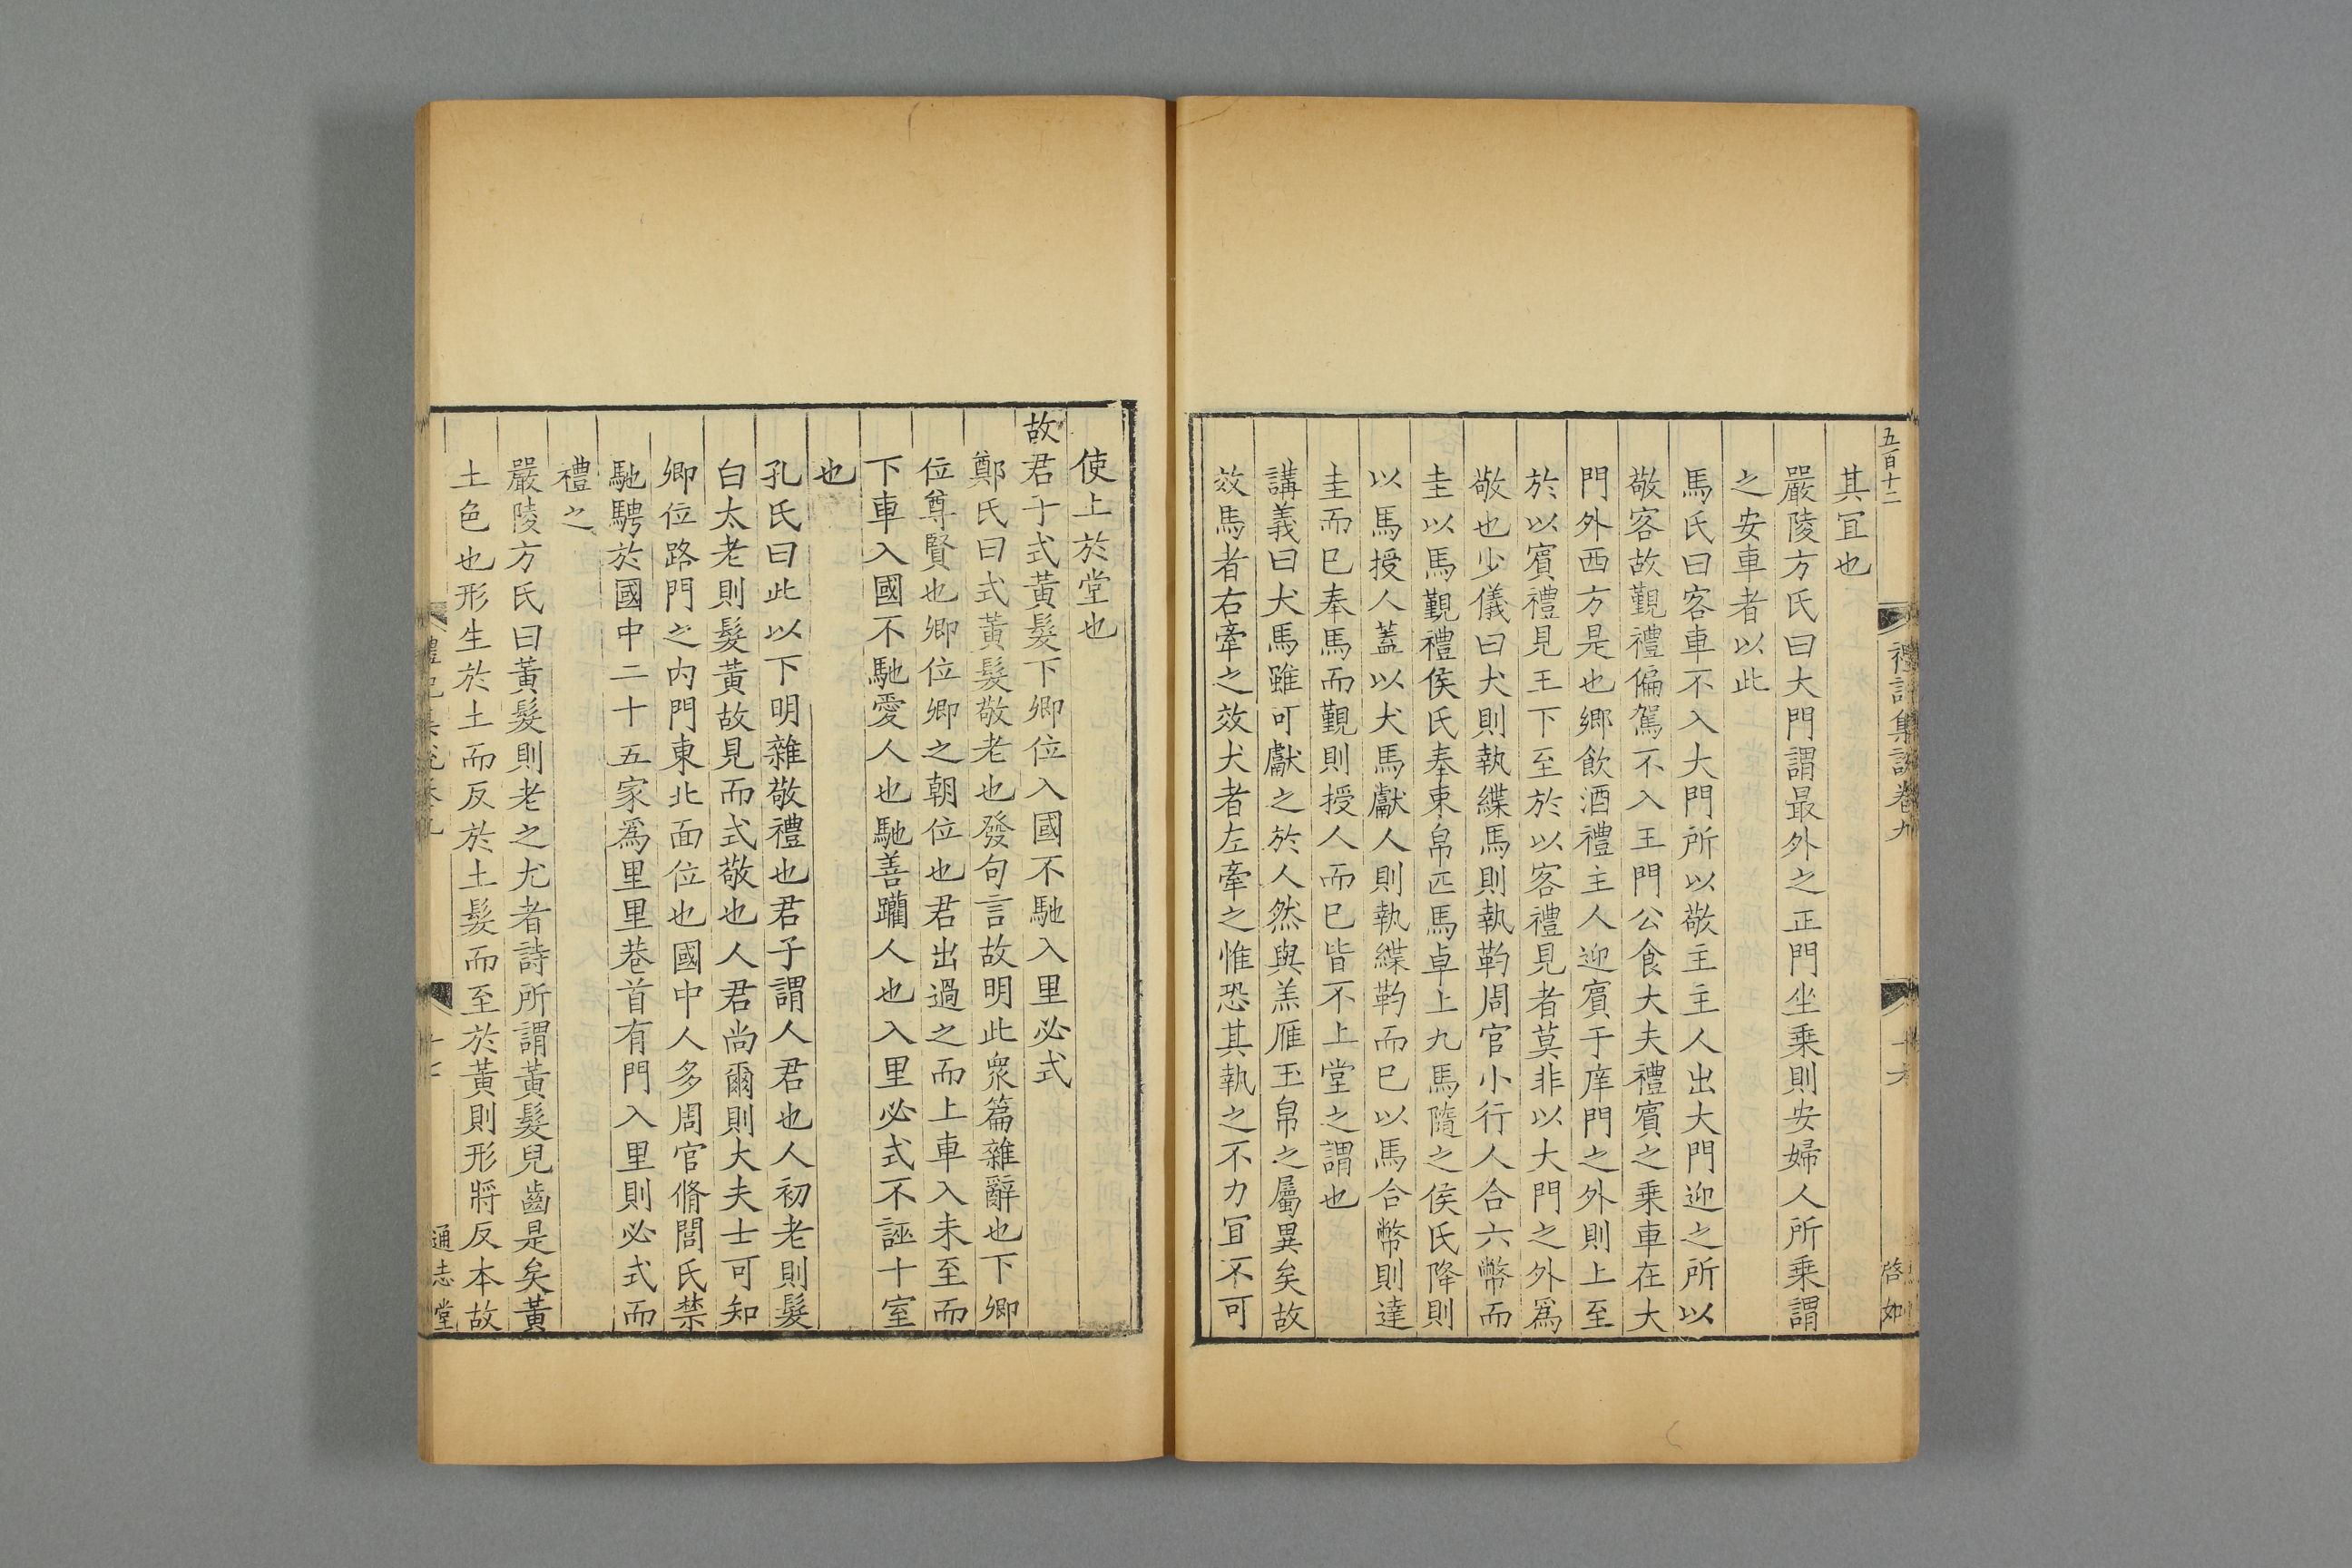 五百十二
禮記集說卷九
啓
如
其宜也
嚴陵方氏曰大門謂最外之正門坐乗則安婦人所乗謂
之安車者以此
馬氏曰客車不入大門所以敬主主人出大門迎之所以
敬客故覲禮偏駕不入王門公食大夫禮賓之乗車在大
門外西方是也鄉飲酒禮主人迎賓于庠門之外則上至
於以賓禮見王下至於以客禮見者莫非以大門之外爲
敬也少儀曰犬則執緤馬則執靮周官小行人合六幣而
圭以馬覲禮侯氏奉束帛匹馬卓上九馬隨之侯氏降則
以馬授人蓋以犬馬獻人則執緤靮而已以馬合幣則達
圭而已奉馬而覲則授人而已皆不上堂之謂也
講義曰犬馬雖可獻之於人然與羔雁玉帛之屬異矣故
效馬者右牽之效犬者左牽之惟恐其執之不力冝不可
使上於堂也
故君子式黃髮下卿位入國不馳入里必式
鄭氏曰式黃髮敬老也發句言故明此衆篇雜辭也下卿
位尊賢也卿位卿之朝位也君出過之而上車入未至而
下車入國不馳愛人也馳善躪人也入里必式不誣十室
也
孔氏曰此以下明雜敬禮也君子謂人君也人初老則髮
白太老則髮黃故見而式敬也人君尚爾則大夫士可知
卿位路門之内門東北面位也國中人多周官脩閭氏禁
馳騁於國中二十五家爲里里巷首有門入里則必式而
禮之
嚴陵方氏曰黃髮則老之尤者詩所謂黃髮兒齒是矣黃
土色也形生於土而反於土髮而至於黃則形將反本故
通志堂